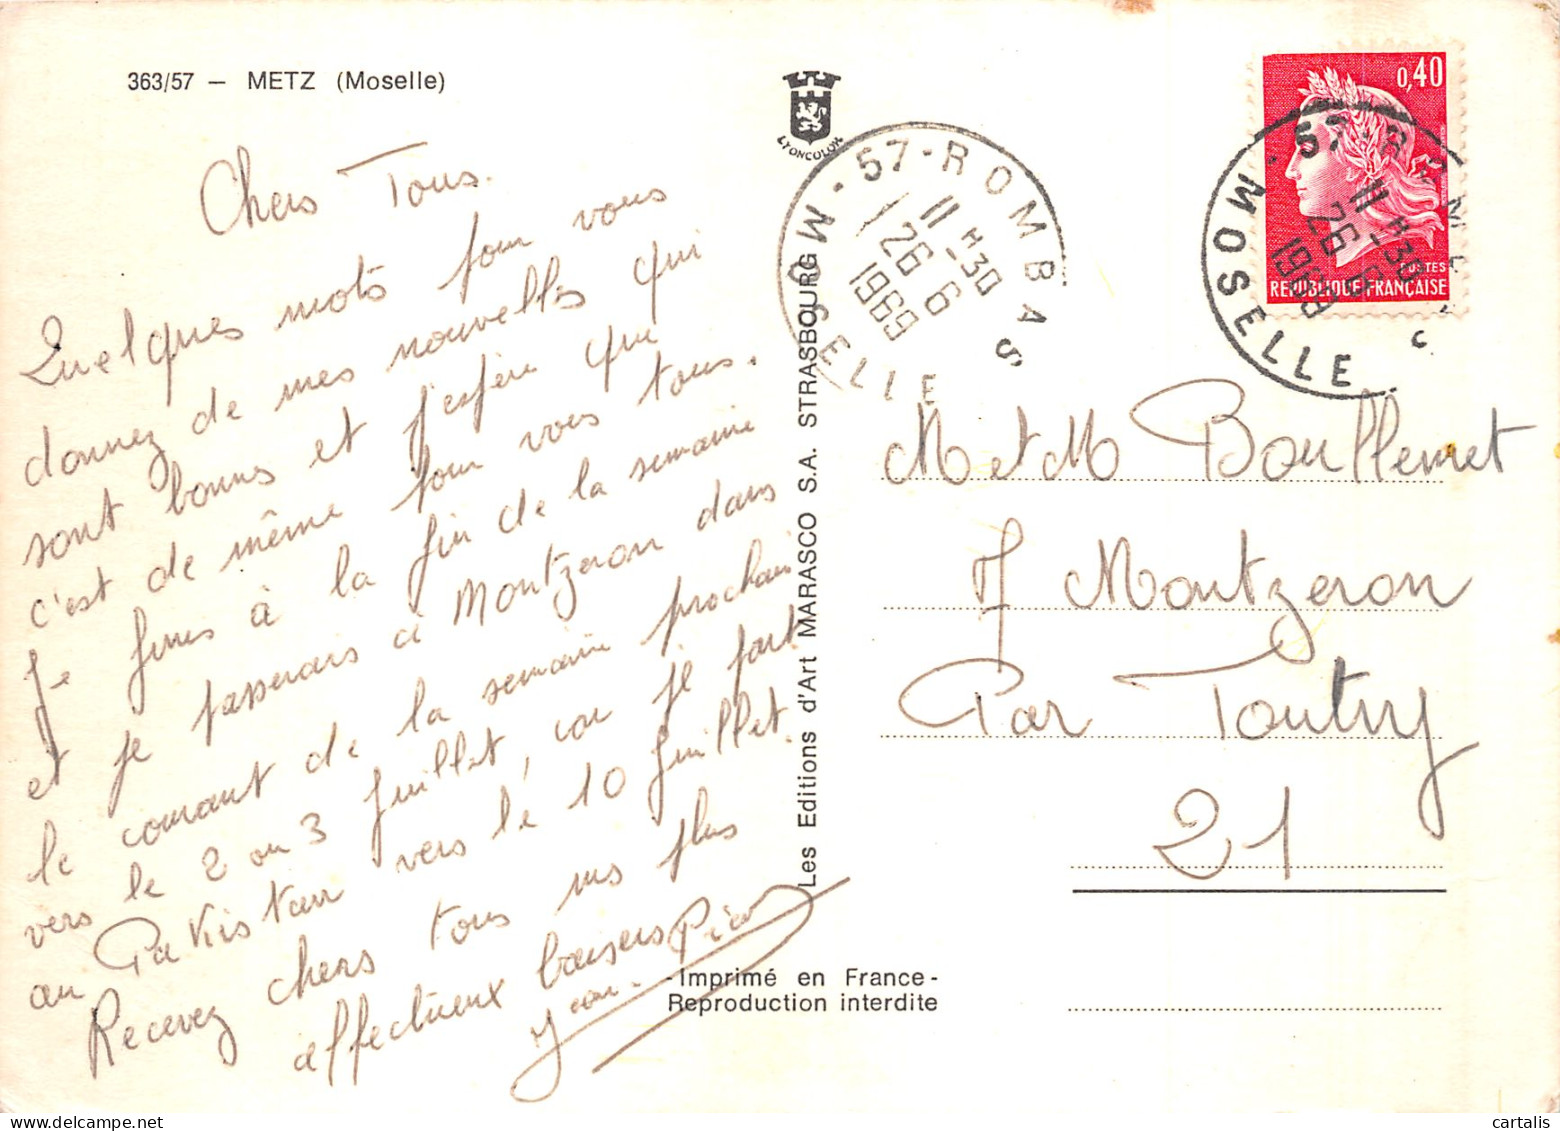 363/57 — METZ (Moselle)
LYONCOLOR
Chers Tous.
Quelques mots pour vous
donnez de mes nouvelles qui
sont bonnes et j'espère que
c'est de même pour vous tous.
Je finis à la fin de la semaine
et je passerais à Montzeron dans
le courant de la semaine prochaine
vers le 2 ou 3 juillet, car je part
au Pakistan vers le 10 juillet.
Recevez chers tous mes plus
affectueux baisers
Jean-Pierre
Les Editions d'Art MARASCO S.A. STRASBOURG
- Imprimé en France -
Reproduction interdite
57 - ROMBAS
11 H 30
26 - 6
1969
MOSELLE
0,40
POSTES
REPUBLIQUE FRANÇAISE
57 - ROMBAS
11 H 30
26 - 6
1969
MOSELLE
M et M Boullemet
Montzeron
Par Toutry
21
cartalis